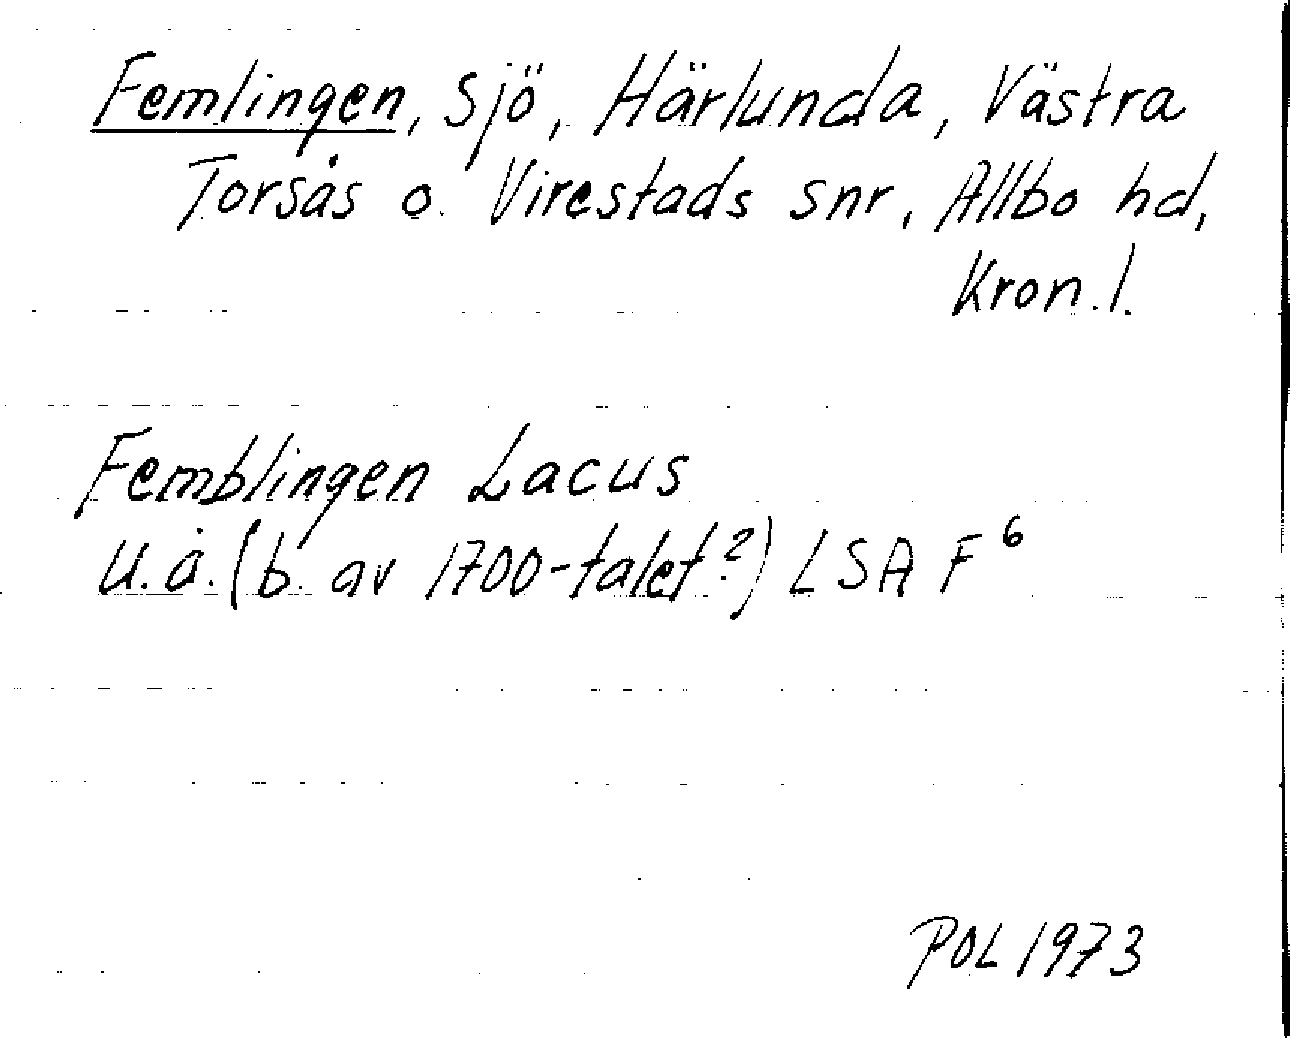 Femlingen, sjö, Härlunda, Västra
Torsås o. Virestads snr, Allbo hd,
Kron. l.
Femblingen Lacus
u.å. (b. av 1700-talet?) LSA F⁶
POL 1973